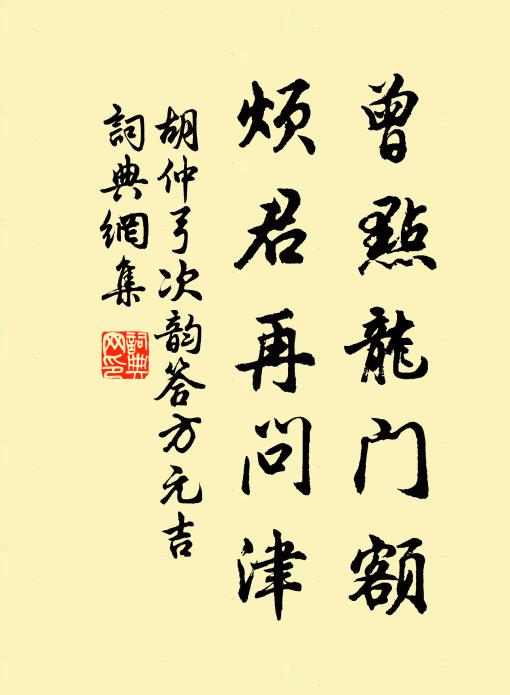 曾點龍门額
煩君再问津
胡仲弓次韵答方元吉
詞典網集
詞典
网印